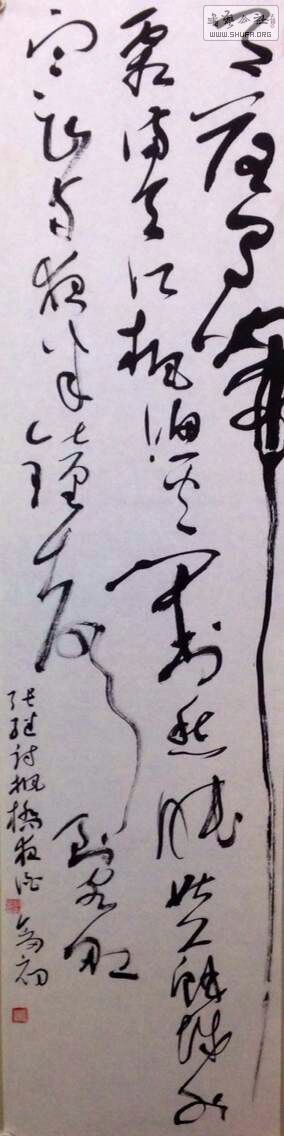 月落烏啼
霜滿天江楓漁火對愁眠姑蘇城外
寒山寺夜半鐘聲到客船
張繼詩楓橋夜泊
書藝公社
WWW.SHUFA.ORG